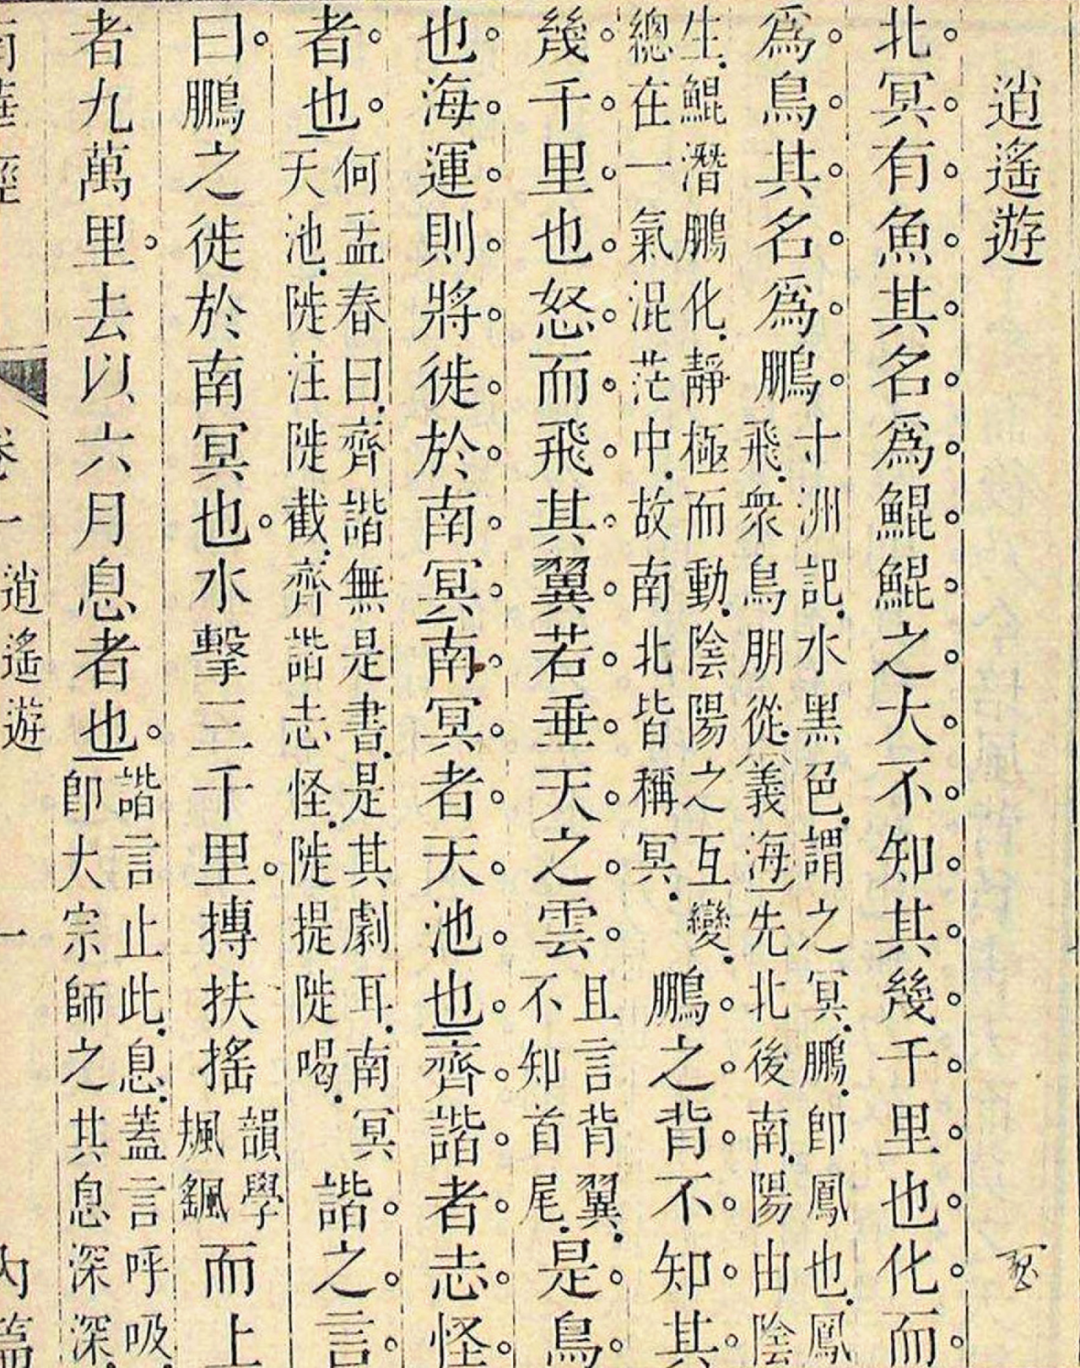 逍遙遊
北冥有魚其名爲鯤鯤之大不知其幾千里也化而
爲鳥其名爲鵬
十洲記水黑色謂之冥鵬卽鳳也鳳
飛衆鳥朋從義海先北後南陽由陰
生鯤潛鵬化靜極而動陰陽之互變
總在一氣混茫中故南北皆稱冥
鵬之背不知其
幾千里也怒而飛其翼若垂天之雲
且言背翼
不知首尾
是鳥
也海運則將徙於南冥南冥者天池也齊諧者志怪
者也
何孟春曰齊諧無是書是其劇耳南冥
天池陡注陡截齊諧志怪陡提陡喝
諧之言
曰鵬之徙於南冥也水擊三千里摶扶搖
韻學
而上
者九萬里去以六月息者也
諧言止此息蓋言呼吸
卽大宗師之其息深深
南華經 卷一 逍遙遊 一 內篇